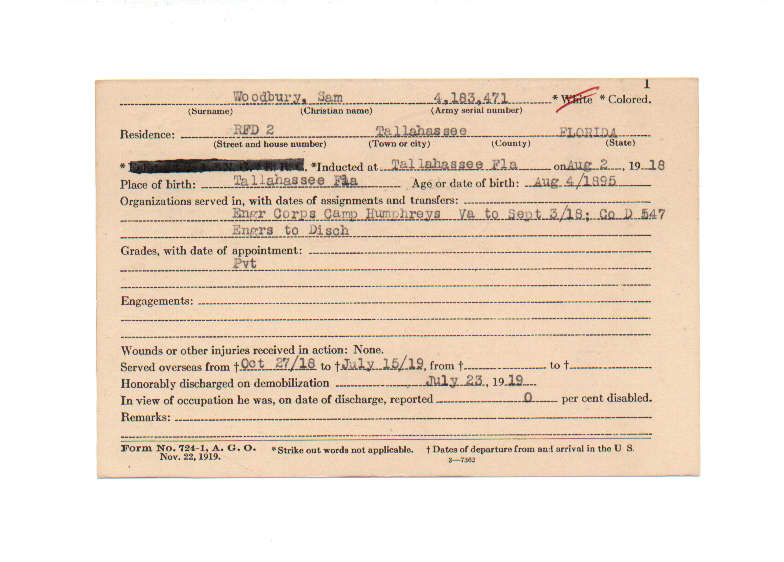 1
Woodbury, Sam 4,183,471 * White * Colored.
(Surname) (Christian name) (Army serial number)
Residence: RFD 2 Tallahassee FLORIDA
(Street and house number) (Town or city) (County) (State)
* *Inducted at Tallahassee Fla on Aug 2, 19 18
Place of birth: Tallahassee Fla Age or date of birth: Aug 4/1895
Organizations served in, with dates of assignments and transfers:
Engr Corps Camp Humphreys Va to Sept 3/18; Co D 547
Engrs to Disch
Grades, with date of appointment:
Pvt
Engagements:
Wounds or other injuries received in action: None.
Served overseas from † Oct 27/18 to † July 15/19, from † to †
Honorably discharged on demobilization July 23, 19 19
In view of occupation he was, on date of discharge, reported 0 per cent disabled.
Remarks:
Form No. 724-1, A. G. O. * Strike out words not applicable. † Dates of departure from and arrival in the U S.
Nov. 22, 1919. 3—7362